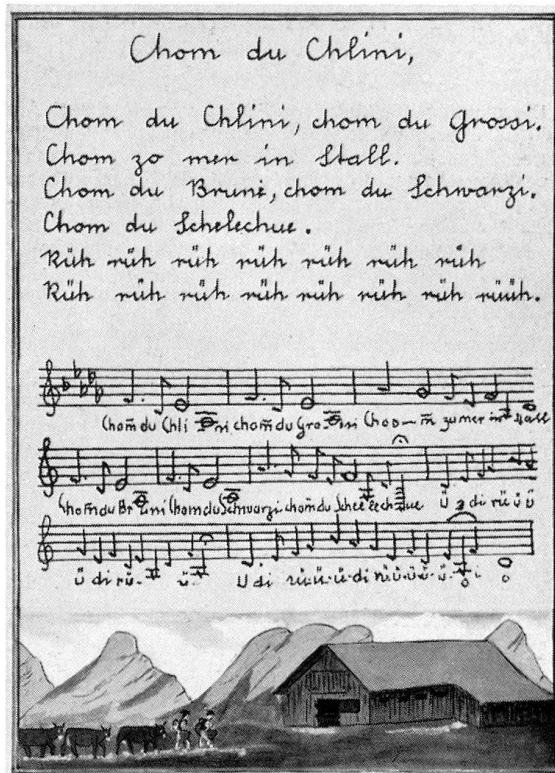 Chom du Chlini,
Chom du Chlini, chom du Grossi.
Chom zo mer in Stall.
Chom du Bruni, chom du Schwarzi.
Chom du Schelechue.
Rüh rüh rüh rüh rüh rüh rüh
Rüh rüh rüh rüh rüh rüh rüh rüüh.
Chom̄ du Chli ni chom̄ du Gro ssi Choo-m̄ zu mer in Stall
Chom̄ du Br ni Chom du Schwarzi chom̄ du Schee le ch ue ü di rü ü ü
ü di rü. ü. U di rü.ü.ü.di rü.ü.ü.ü.ü. i